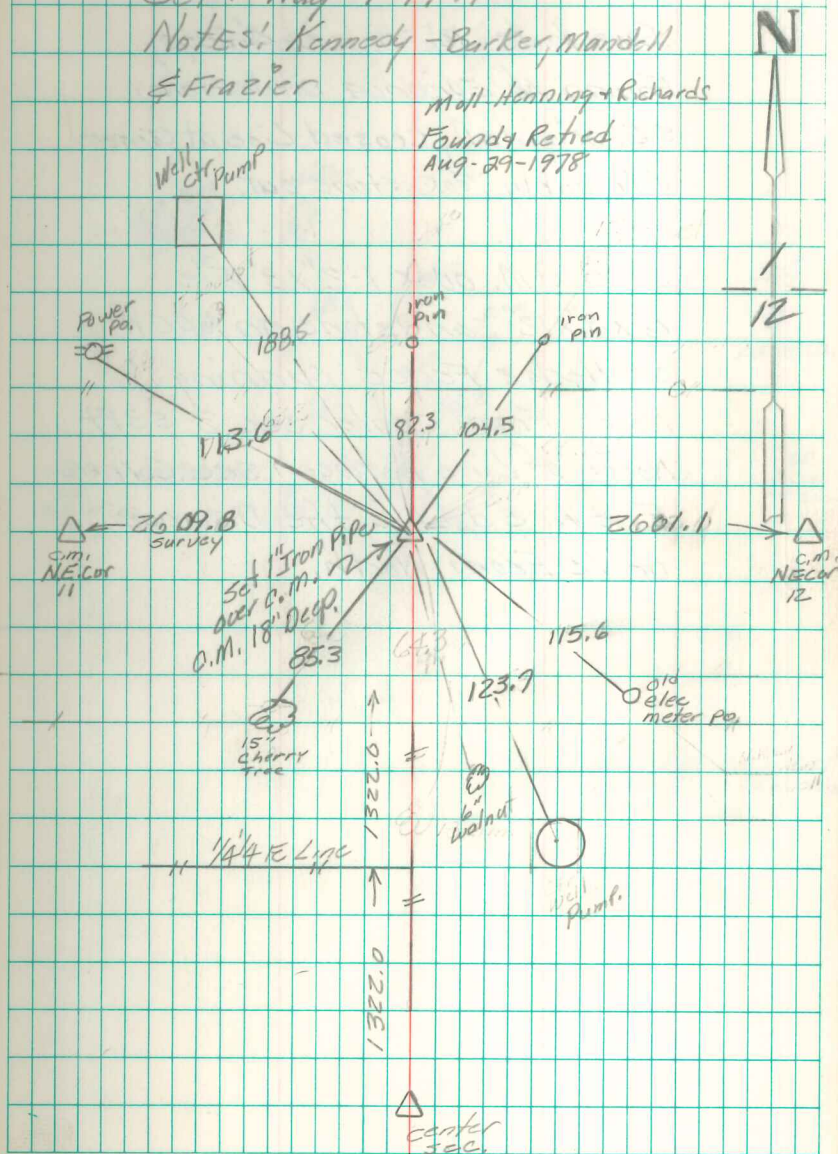 Notes: Kennedy - Barker, Mandell
& Frazier
N
Moll Henning & Richards
Found & Retied
Aug-29-1978
Well ctr pump
1
12
Power
po.
Iron
pin
iron
pin
188.5
113.6
82.3
104.5
2609.8
survey
2601.1
C.m.
N.E. Cor
11
C.m.
NE Cor
12
Set 1" Iron Pipe
over C.M.
C.M. 18" Deep.
85.3
64.3
123.7
115.6
old
elec
meter po.
15"
Cherry
Tree
6"
Walnut
1322.0
1/4 1/4 E Line
Well
Pump.
1322.0
center
sec.